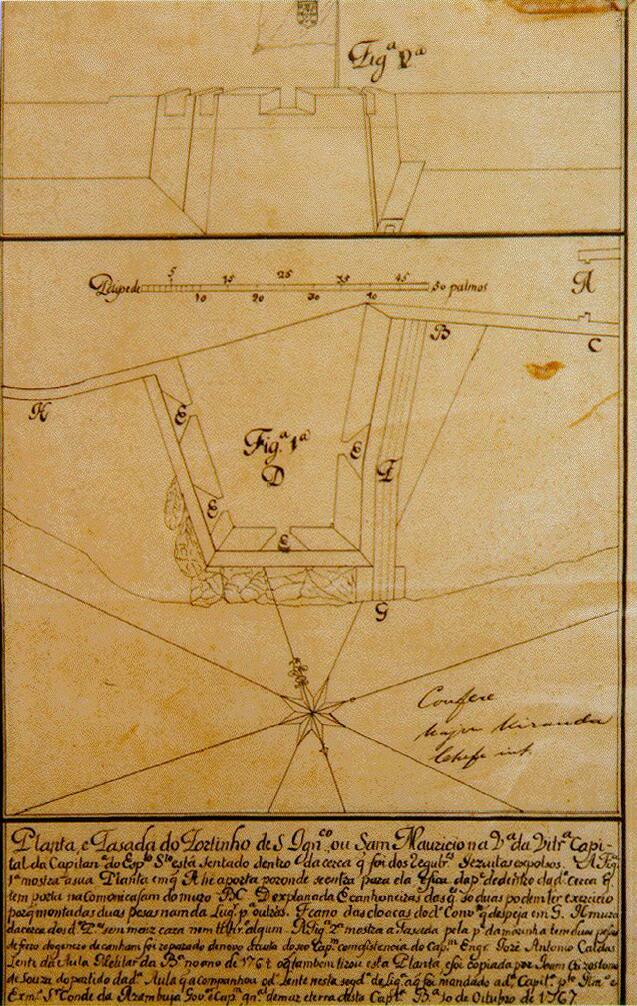 Figª 2ª
5 15 25 35 45
Petipede 50 palmos
10 20 30 40
A
B
C
H
E
Figª 1ª
E
D
F
E
E
G
Confere
Major Miranda
Chefe int.
Planta, e Fasada do Fortinho de S. Ignco, ou Sam Mauricio na Vª da Vitrª Capi-
tal da Capitanª do Espto Sto está sentado dentro da cerca q̃ foi dos Regultrs Jezuitas expolsos. A Figª
1ª mostra a sua Planta em q̃ A he aporta poronde seentra para ela
tem porta na Comonicasam do muro BC. D explanada E canhoneiras dos q̃ so duas podem ter exzercio
porq̃ montadas duas pesas nam da Lugʳ pª outras. F cano das cloacas do dº Convto q̃ despeja em G. H muro
da cerca do sem mais caza nem algum. A Figª 2ª mostra a Fasada pela pte da marinha tem duas pesas
de ferro foi reparado denovo Capm com asistencia do Capm Engrº Jozé Antonio Caldas
Lente da Aula Melitar da Bª no ano de 176 tirou esta Planta, e foi copiada por
de Souza do partido da dª Aula q̃ acompanhou odº Lente nesta q̃ ao foi mandado
Exmº Sr Conde da Azambuja Govº e Capm gnal demar eterra desta Captª Bª 10 de Outubro de